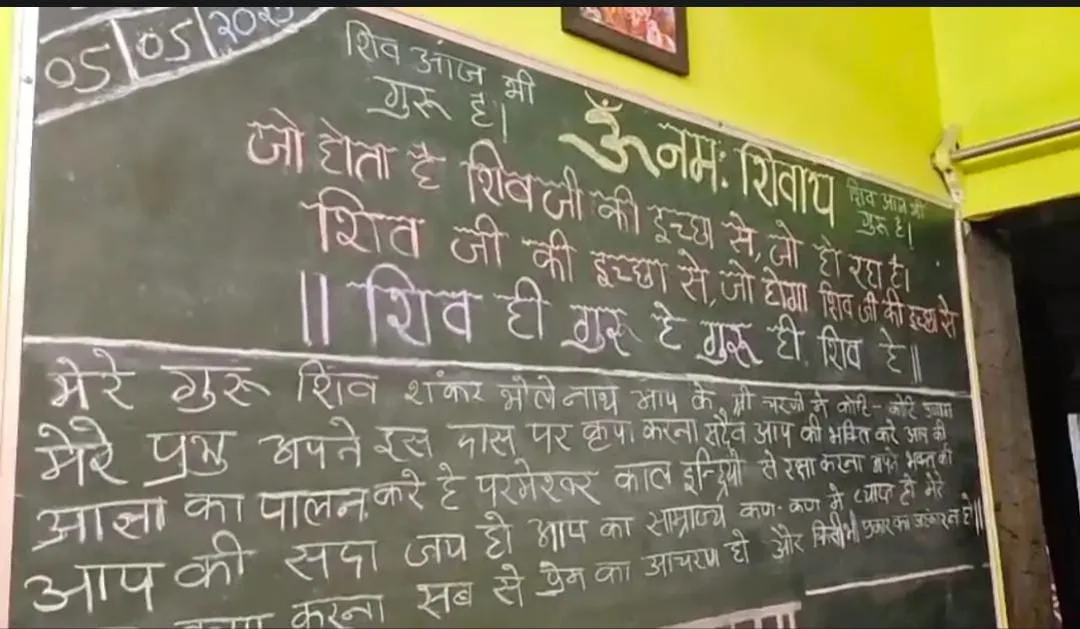 05/05/2025
शिव आज भी
गुरू है।
ॐ नमः शिवाय
शिव आज भी
गुरू है।
जो होता है शिव जी की इच्छा से, जो हो रहा है।
शिव जी की इच्छा से, जो होगा शिव जी की इच्छा से
|| शिव ही गुरू है गुरू ही शिव है ||
मेरे गुरू शिव शंकर भोले नाथ आप के श्री चरणों में कोटि - कोटि प्रणाम
मेरे प्रभु अपने इस दास पर कृपा करना सदैव आप की भक्ति करे आप की
आज्ञा का पालन करे हे परमेश्वर काल इन्द्रियों से रक्षा करना अपने भक्त की
आप की सदा जय हो आप का साम्राज्य कण-कण में व्याप्त हो मेरे
करना सब से प्रेम का आचरण हो और किसी भी प्रकार का अहंकार न हो ||